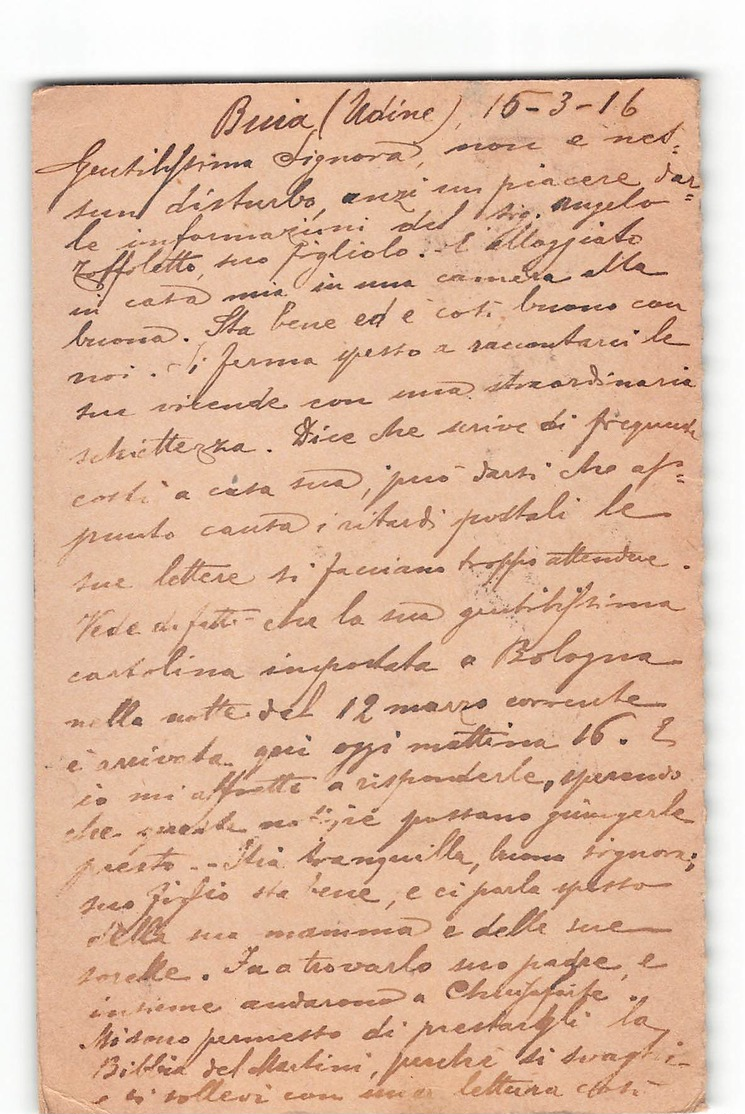 Buia (Udine), 16-3-16
Gentilissima Signora, non è nes=
sun disturbo, anzi un piacere dar=
le informazioni del sig. Angelo
Zoffoletto, suo figliolo. - È alloggiato
in casa mia in una camera alla
buona. Sta bene ed è così buono con
noi. Si ferma spesso a raccontarci le
sue vicende con una straordinaria
schiettezza. Dice che scrive di frequente
costì a casa sua, può darsi che ap=
punto causa i ritardi postali le
sue lettere si facciano troppo attendere.
Vede difatti che la sua gentilissima
cartolina impostata a Bologna
nella notte del 12 marzo corrente
è arrivata qui oggi mattina 16. E
io mi affretto a risponderle, sperando
che queste notizie possano giungerle
presto. - Stia tranquilla, buona signora;
suo figlio sta bene, e ci parla spesso
della sua mamma e delle sue
sorelle. Fu a trovarlo suo padre, e
insieme andarono a
Mi sono permesso di prestargli la
Bibbia del Martini, perchè si svaghi
e si sollevi con una lettura così